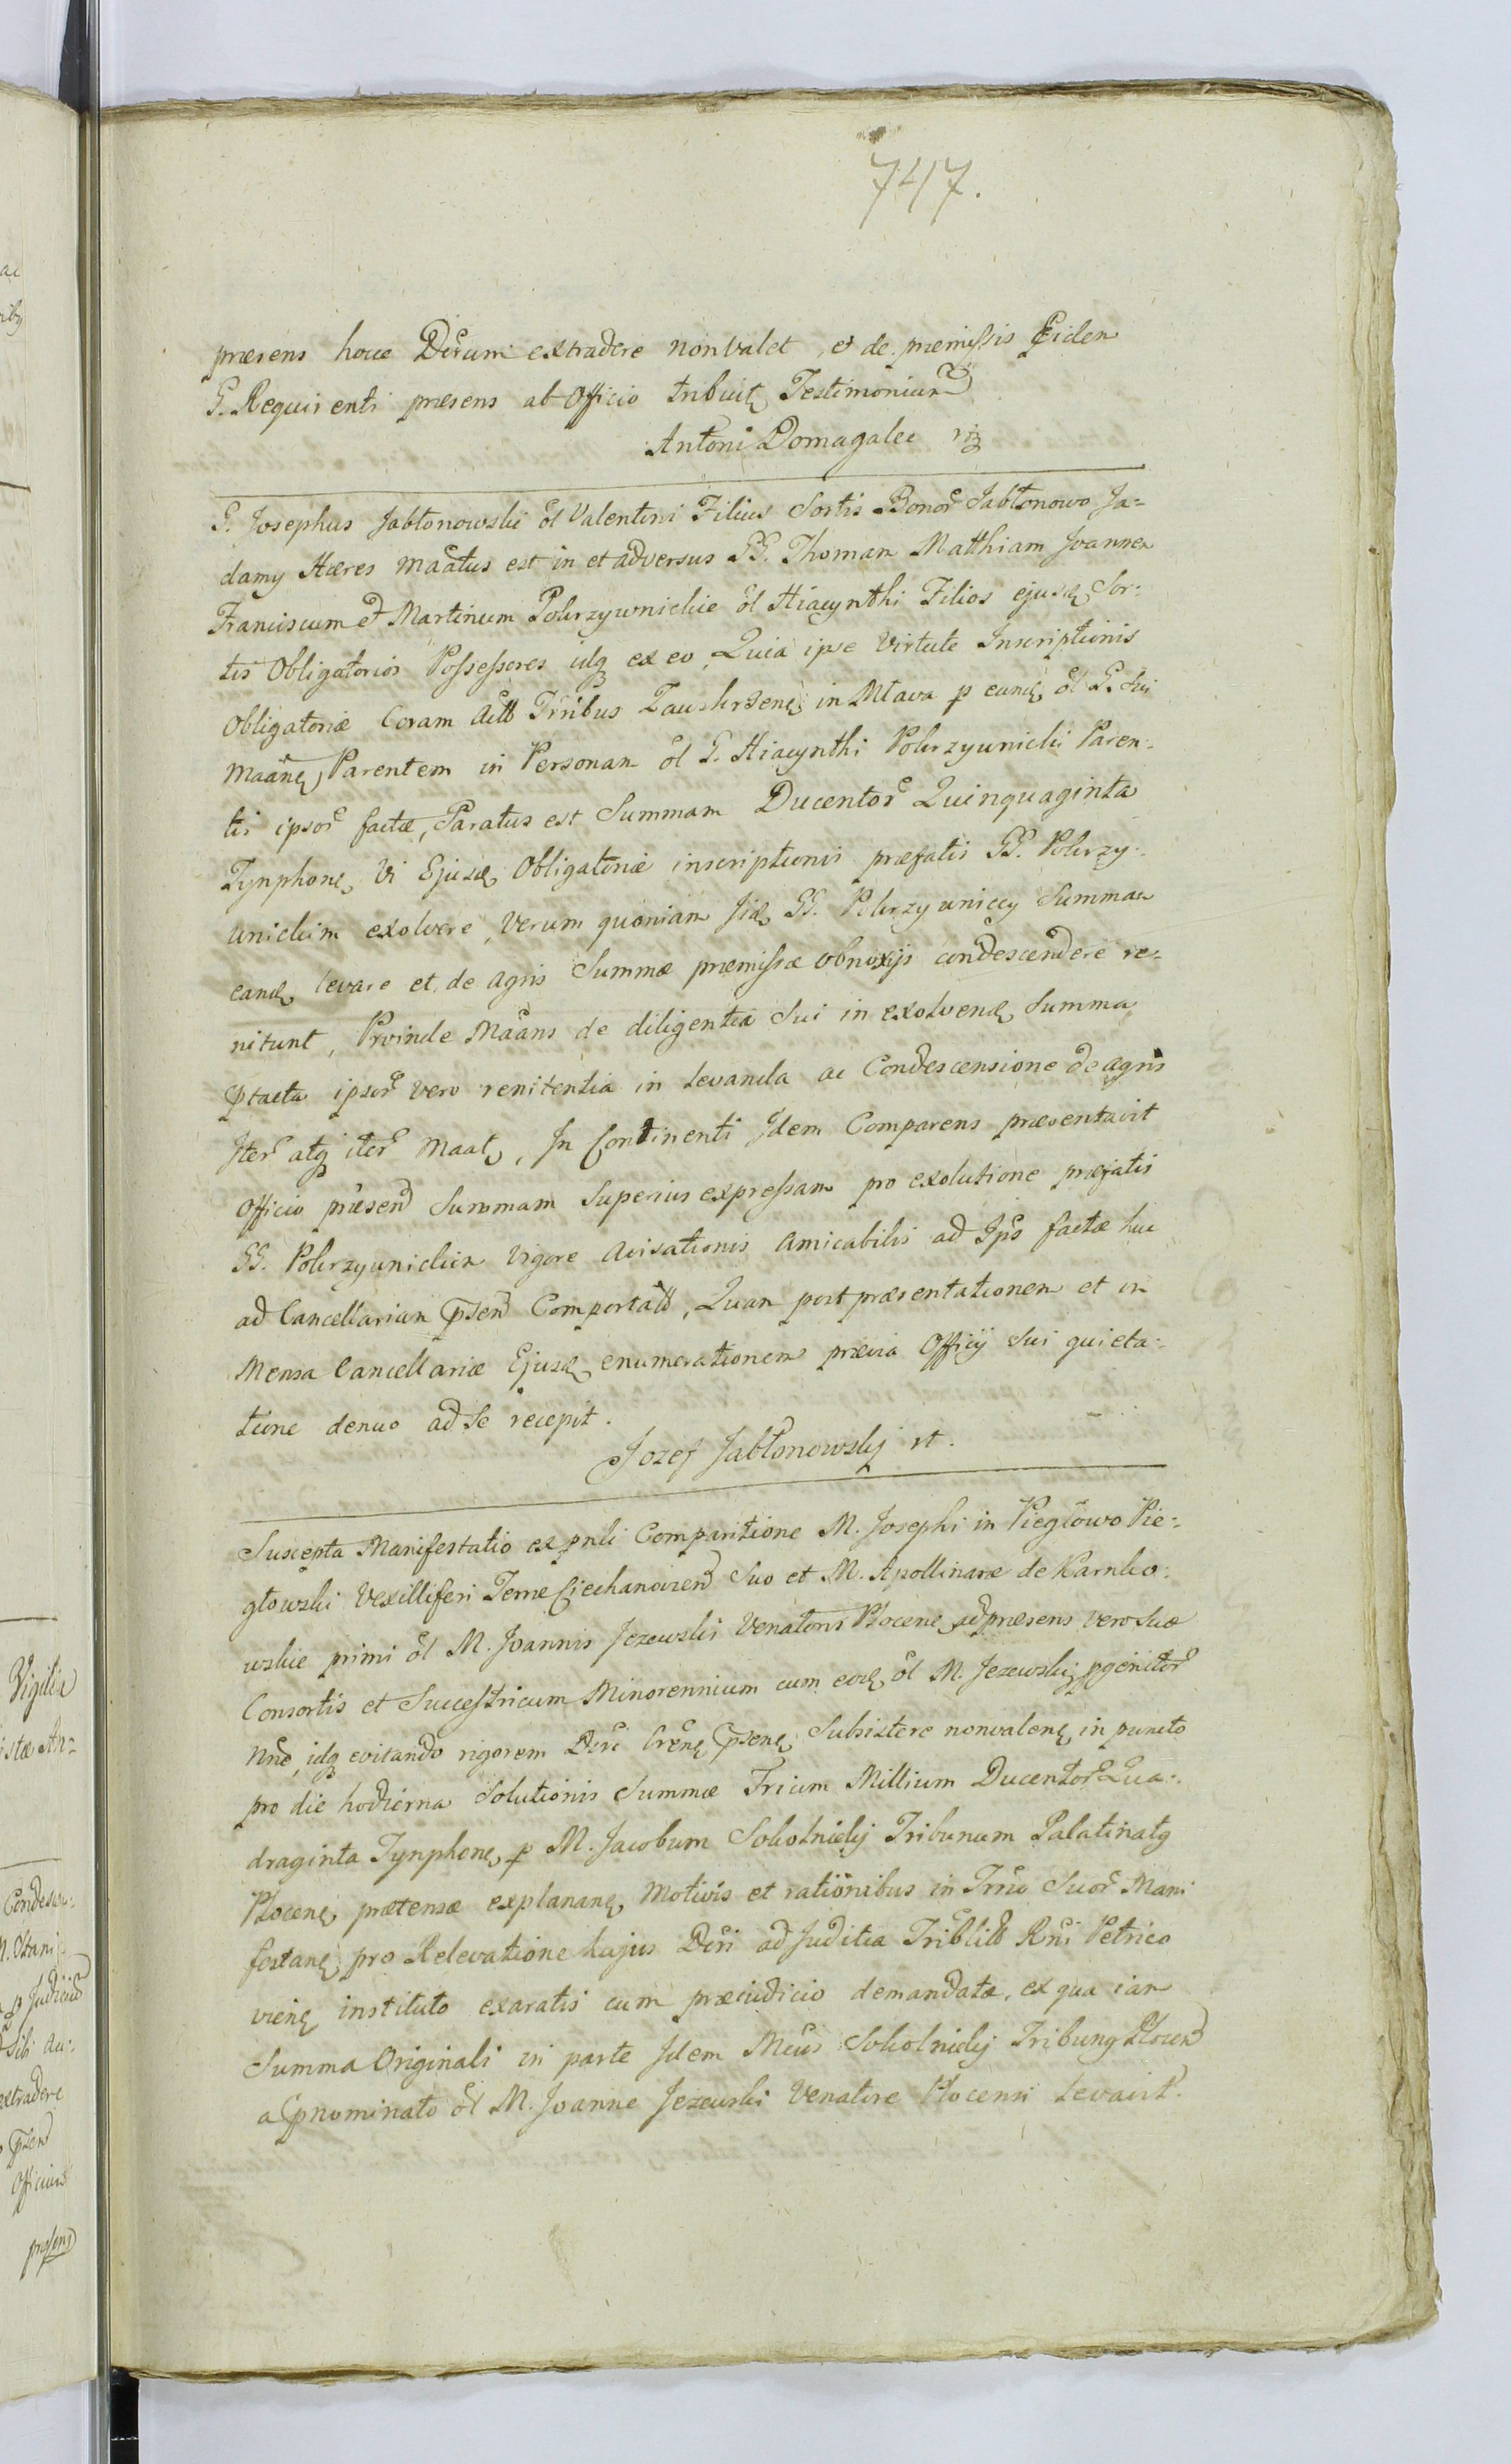 747.
præsens hocce Dcrum extradere non valet, et de præmissis Eidem
G. Requirenti præsens ab Officio tribuit Testimonium
Antoni Domagalec
G. Josephus Jabłonowski ol Valentini Filius Sortis Bonor Jabłonowo Ja=
damy Hæres maatus est in et adversus GG. Thomam Matthiam Joannem
Franciscum et Martinum Pokrzywnickie ol Hiacynthi Filios ejusd Sor:
tis Obligatorios Possessores idq ex eo, Quia ipse Virtute Inscriptionis
Obligatoriæ Coram Actis Trribus Zawskrzens in Mława p eund ol G. sui
maans Parentem in Personam ol G. Hiacynthi Pokrzywnicki Paren:
tis ipsor factæ, Paratus est Summam Ducentor Quinquaginta
Tynphons Vi Ejusd Obligatoriæ inscriptionis præfatis GG. Pokrzy:
wnickim exolvere, Verum quoniam Jid GG. Pokrzywniccy Summam
eand levare et de agris Summæ præmissæ obnoxijs condescendere re=
nitunt, Proinde Maans de diligentia Sui in exolvend Summa
ptacta ipsor vero renitentia in Levanda ac Condescensione de agris
Iter atq iter Maat, In Continenti Idem Comparens præsentavit
Officio præsen Summam Superius expressam pro exolutione præfatis
GG. Pokrzywnickim vigore avisationis amicabilis ad Ipos factæ huc
ad Cancellariam psen Comportat, Quam post præsentationem et in
Mensa Cancellariæ Ejusd enumerationem prævia Officij Sui quieta:
tione denuo ad Se recepit.
Jozef Jabłonowskij
Suscepta Manifestatio ex pnli Comparitione M. Josephi in Piegłowo Pie=
głowski Vexilliferi Terræ Ciechanovien Suo et M. Apollinaræ de Karnko:
wskie primi ol M. Joannis Jezewski Venatoris Plocens ad præsens vero Suæ
Consortis et Successricum Minorennium cum eod ol M. Jezewskij pgenitor
nne, idq evitando rigorem Dcri Crens psens Subsistere nonvalens in puncto
pro die hodierna Solutionis Summæ Trium Millium Ducentor Qua:
draginta Tynphons p M. Jacobum Sokolnicky Tribunum Palatinatq
Plocens prætensæ explanans Motivis et rationibus in Trrio Suor Mani
festans pro Relevatione hujus Dcri ad Juditia Triblia Rni Petrico
viens instituto exaratis cum præiudicio demandatæ, ex qua iam
Summa Originali in parte Idem Mcus Sokolnicky Tribung Plocen
a pnominato ol M. Joanne Jezewski Venatore Plocensi Levavit.
Vigilia
istæ An=
Condescen:
Stani:
p Judiciu
sibi au:
extradere
psen
Officium
præsens